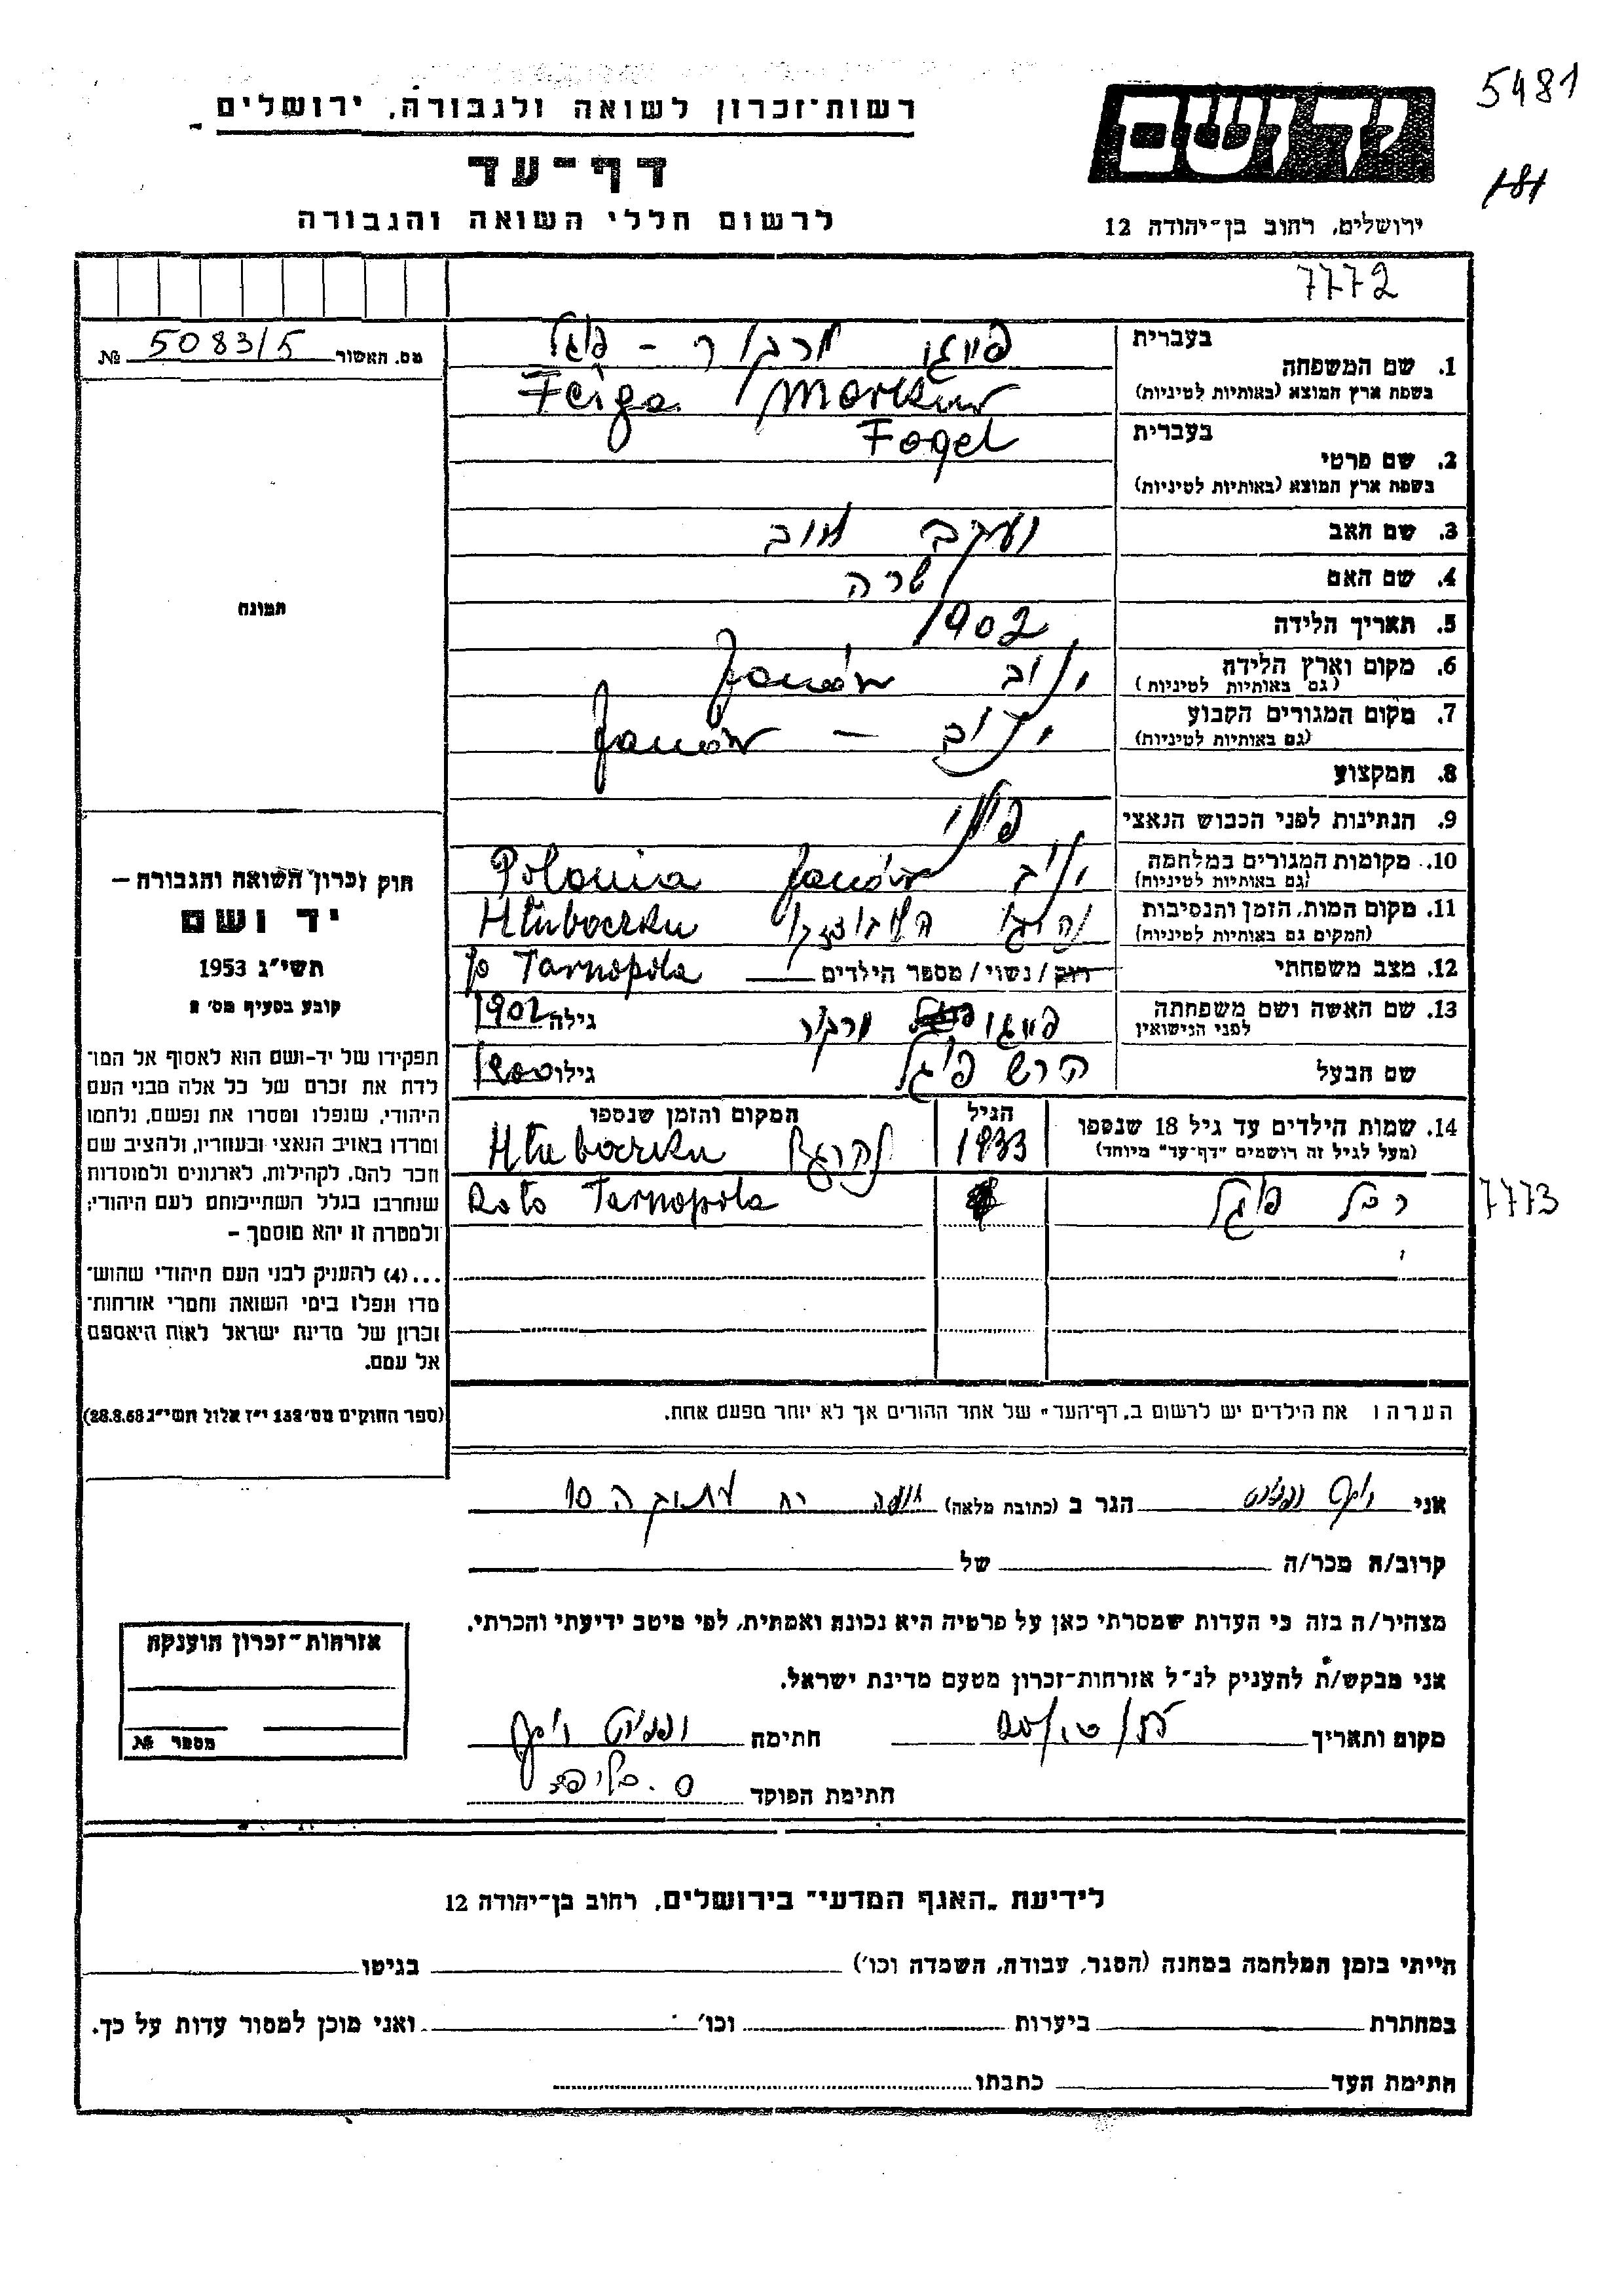 5481
181
ידושם
ירושלים, רחוב בן־יהודה 12
רשות־זכרון לשואה ולגבורה, ירושלים
דף־עד
לרשום חללי השואה והגבורה
7772
מס. האשור 5083/5 №
תמונה
1. שם המשפחה
בעברית פייגו מרקור - פוגל
בשפת ארץ המוצא (באותיות לטיניות) Feiga Markur
Fogel
2. שם פרטי
בעברית
בשפת ארץ המוצא (באותיות לטיניות)
3. שם האב יעקב
4. שם האם שרה
5. תאריך הלידה 1902
6. מקום וארץ הלידה ינוב Janów
(גם באותיות לטיניות)
7. מקום המגורים הקבוע ינוב - Janów
(גם באותיות לטיניות)
8. המקצוע
9. הנתינות לפני הכבוש הנאצי
10. מקומות המגורים במלחמה ינוב Janów Polonia
(גם באותיות לטיניות)
11. מקום המות, הזמן והנסיבות Hłuboczku
(המקום גם באותיות לטיניות)
12. מצב משפחתי רוק / נשוי / מספר הילדים Tarnopola
13. שם האשה ושם משפחתה פייגו מרקור גילה 1902
לפני הנישואין
שם הבעל הרש פוגל גילו 1900
14. שמות הילדים עד גיל 18 שנספו
(מעל לגיל זה רושמים "דף־עד" מיוחד)
הגיל
המקום והזמן שנספו
1933 נהרגה Hłuboczku
רכל פוגל Tarnopola
7773
הערה: את הילדים יש לרשום ב„דף־העד" של אחד ההורים אך לא יותר מפעם אחת.
חוק זכרון השואה והגבורה –
יד ושם
תשי"ג 1953
קובע בסעיף מס' 2
תפקידו של יד-ושם הוא לאסוף אל המו־
לדת את זכרם של כל אלה מבני העם
היהודי, שנפלו ומסרו את נפשם, נלחמו
ומרדו באויב הנאצי ובעוזריו, ולהציב שם
וזכר להם, לקהילות, לארגונים ולמוסדות
שנחרבו בגלל השתייכותם לעם היהודי;
ולמטרה זו יהא מוסמך –
...(4) להעניק לבני העם היהודי שהוש־
מדו ונפלו בימי השואה והמרי אזרחות־
זכרון של מדינת ישראל לאות היאספם
אל עמם.
(ספר החוקים מס' 132 י"ז אלול תשי"ג 28.8.53)
אני הגר ב (כתובת מלאה) 10
קרוב/ה מכר/ה של
מצהיר/ה בזה כי העדות שמסרתי כאן על פרטיה היא נכונה ואמתית, לפי מיטב ידיעתי והכרתי.
אני מבקש/ת להעניק לנ"ל אזרחות־זכרון מטעם מדינת ישראל.
מקום ותאריך חתימה
חתימת הפוקד
אזרחות־זכרון הוענקה
מספר №
לידיעת „האגף המדעי" בירושלים, רחוב בן־יהודה 12
הייתי בזמן המלחמה במחנה (הסגר, עבודה, השמדה וכו') בגיטו
במחתרת ביערות וכו' ואני מוכן למסור עדות על כך.
חתימת העד כתבתו